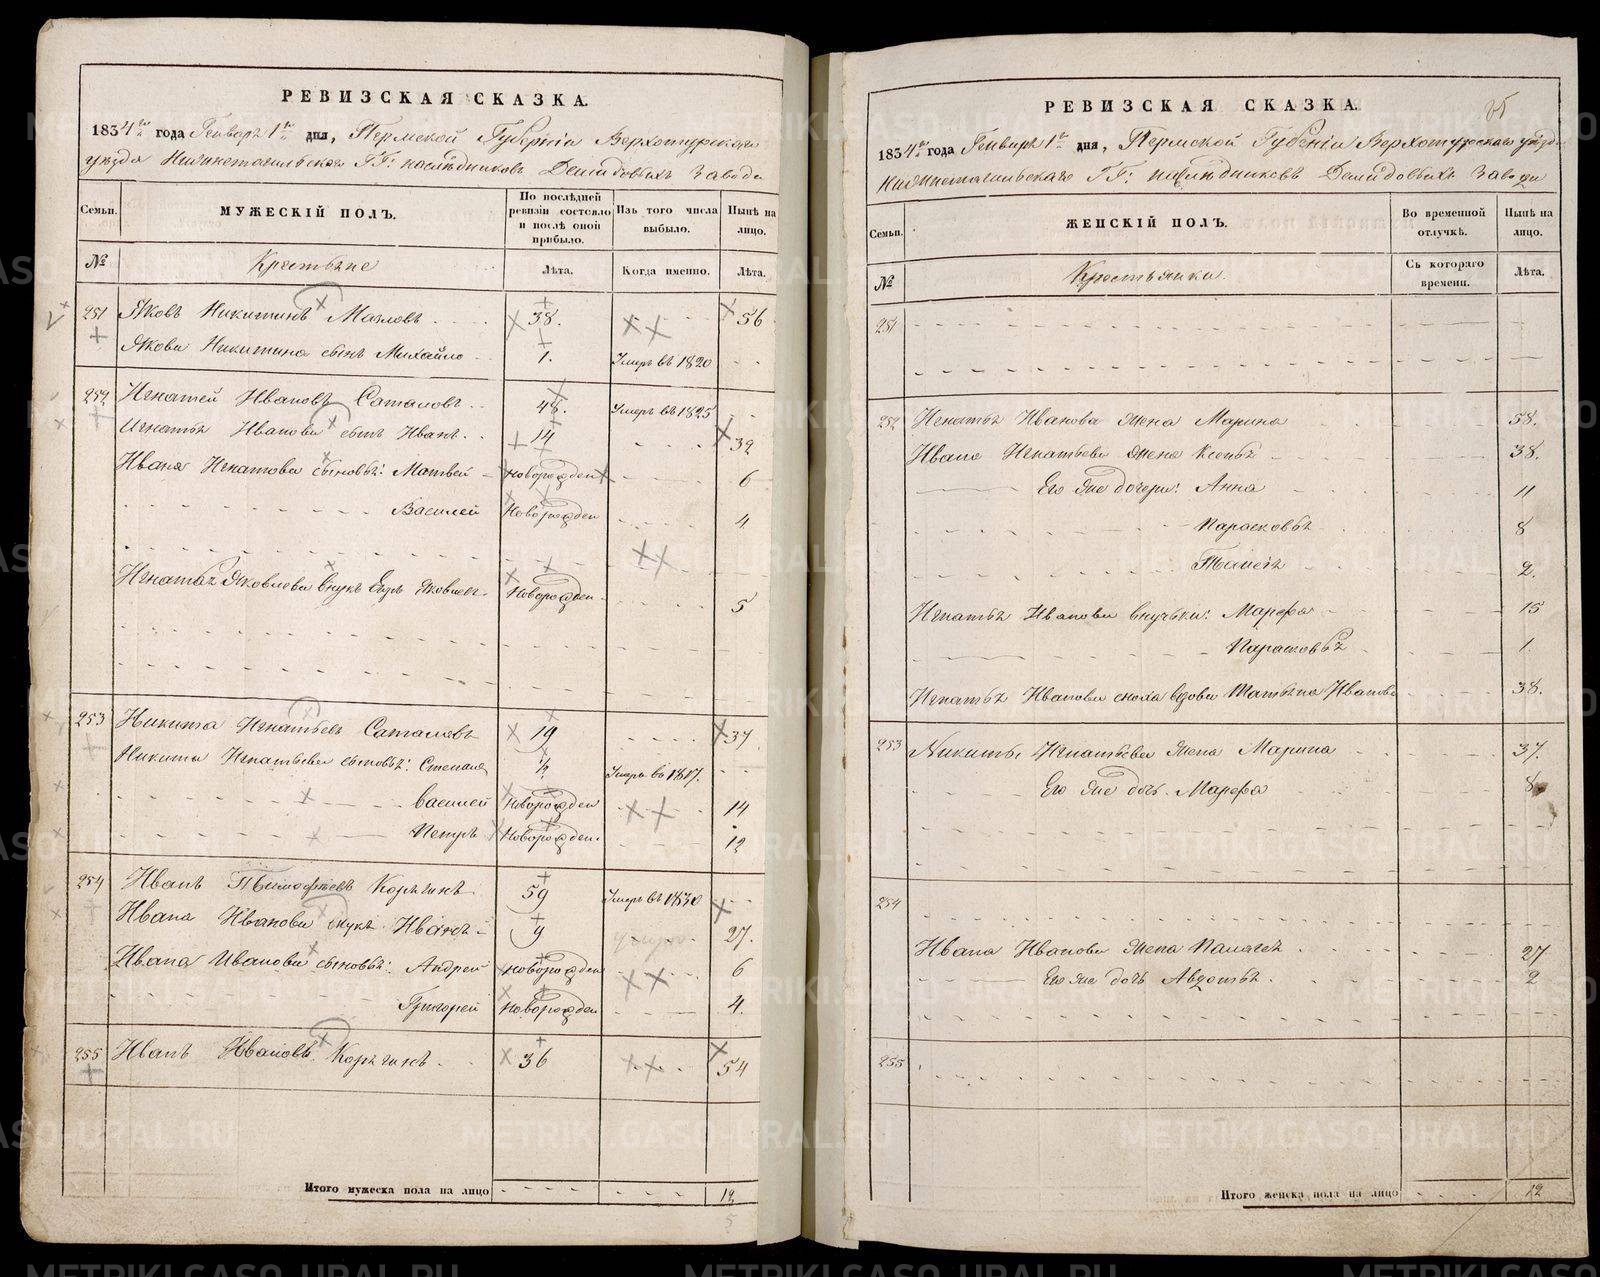 РЕВИЗСКАЯ СКАЗКА.
1834го года Генваря 1го дня, Пермской Губерніи Верхотурскаго
уѣзда Нижнетагильскаго ГГ: наслѣдниковъ Демидовыхъ Завода
Семьи.
МУЖЕСКІЙ ПОЛЪ.
По послѣдней ревизіи состояло и послѣ оной прибыло.
Изъ того числа выбыло.
Нынѣ на лицо.
№
Крестьяне
Лѣта.
Когда именно.
Лѣта.
251 Яковъ Никитинъ 38. 56
Якова Никитина сынъ Михайло 1. Умеръ въ 1820
252 Игнатей Ивановъ Сапаловъ 48. Умеръ въ 1825
Игнатья Иванова сынъ Иванъ 14 32
Ивана Игнатова сыновья: Матвей новорожден 6
Василей Новорожден 4
Игнатья Яковлева внукъ Егоръ Яковлевъ Новорожден 5
253 Никита Игнатьевъ Сапаловъ 19 37
Никиты Игнатьева сыновья: Степанъ ½ Умеръ въ 1817.
Василей Новорожден 14
Петръ Новорожден. 12
254 Иванъ Тимофѣевъ 59 Умеръ въ 1830
Ивана Иванова внукъ Иванъ 9 27.
Ивана Иванова сыновья: Андрей Новорожден 6
Григорей Новорожден 4.
255 Иванъ Ивановъ 36 54
Итого мужеска пола на лицо 12
РЕВИЗСКАЯ СКАЗКА.
1834го года Генваря 1го дня, Пермской Губерніи Верхотурскаго уѣзда
Нижнетагильскаго ГГ: наслѣдниковъ Демидовыхъ Завода
Семьи.
ЖЕНСКІЙ ПОЛЪ.
Во временной отлучкѣ.
Нынѣ на лицо.
№
Крестьянки.
Съ котораго времени.
Лѣта.
251
252 Игнатья Иванова жена Марина 58.
Ивана Игнатьева жена 38.
Его же дочери: Анна 11
Парасковья 8
2.
Игнатья Иванова внучки: Марфа 15
Парасковья 1.
Игнатья Иванова сноха вдова Татьяна Иванова 38.
253 Никиты Игнатьева жена Марина 37.
Его же дочь Марфа 8
254
Ивана Иванова жена Палагея 27
Его же дочь Авдотья 2
255
Итого женска пола на лицо 12
METRIKI.GASO-URAL.RU